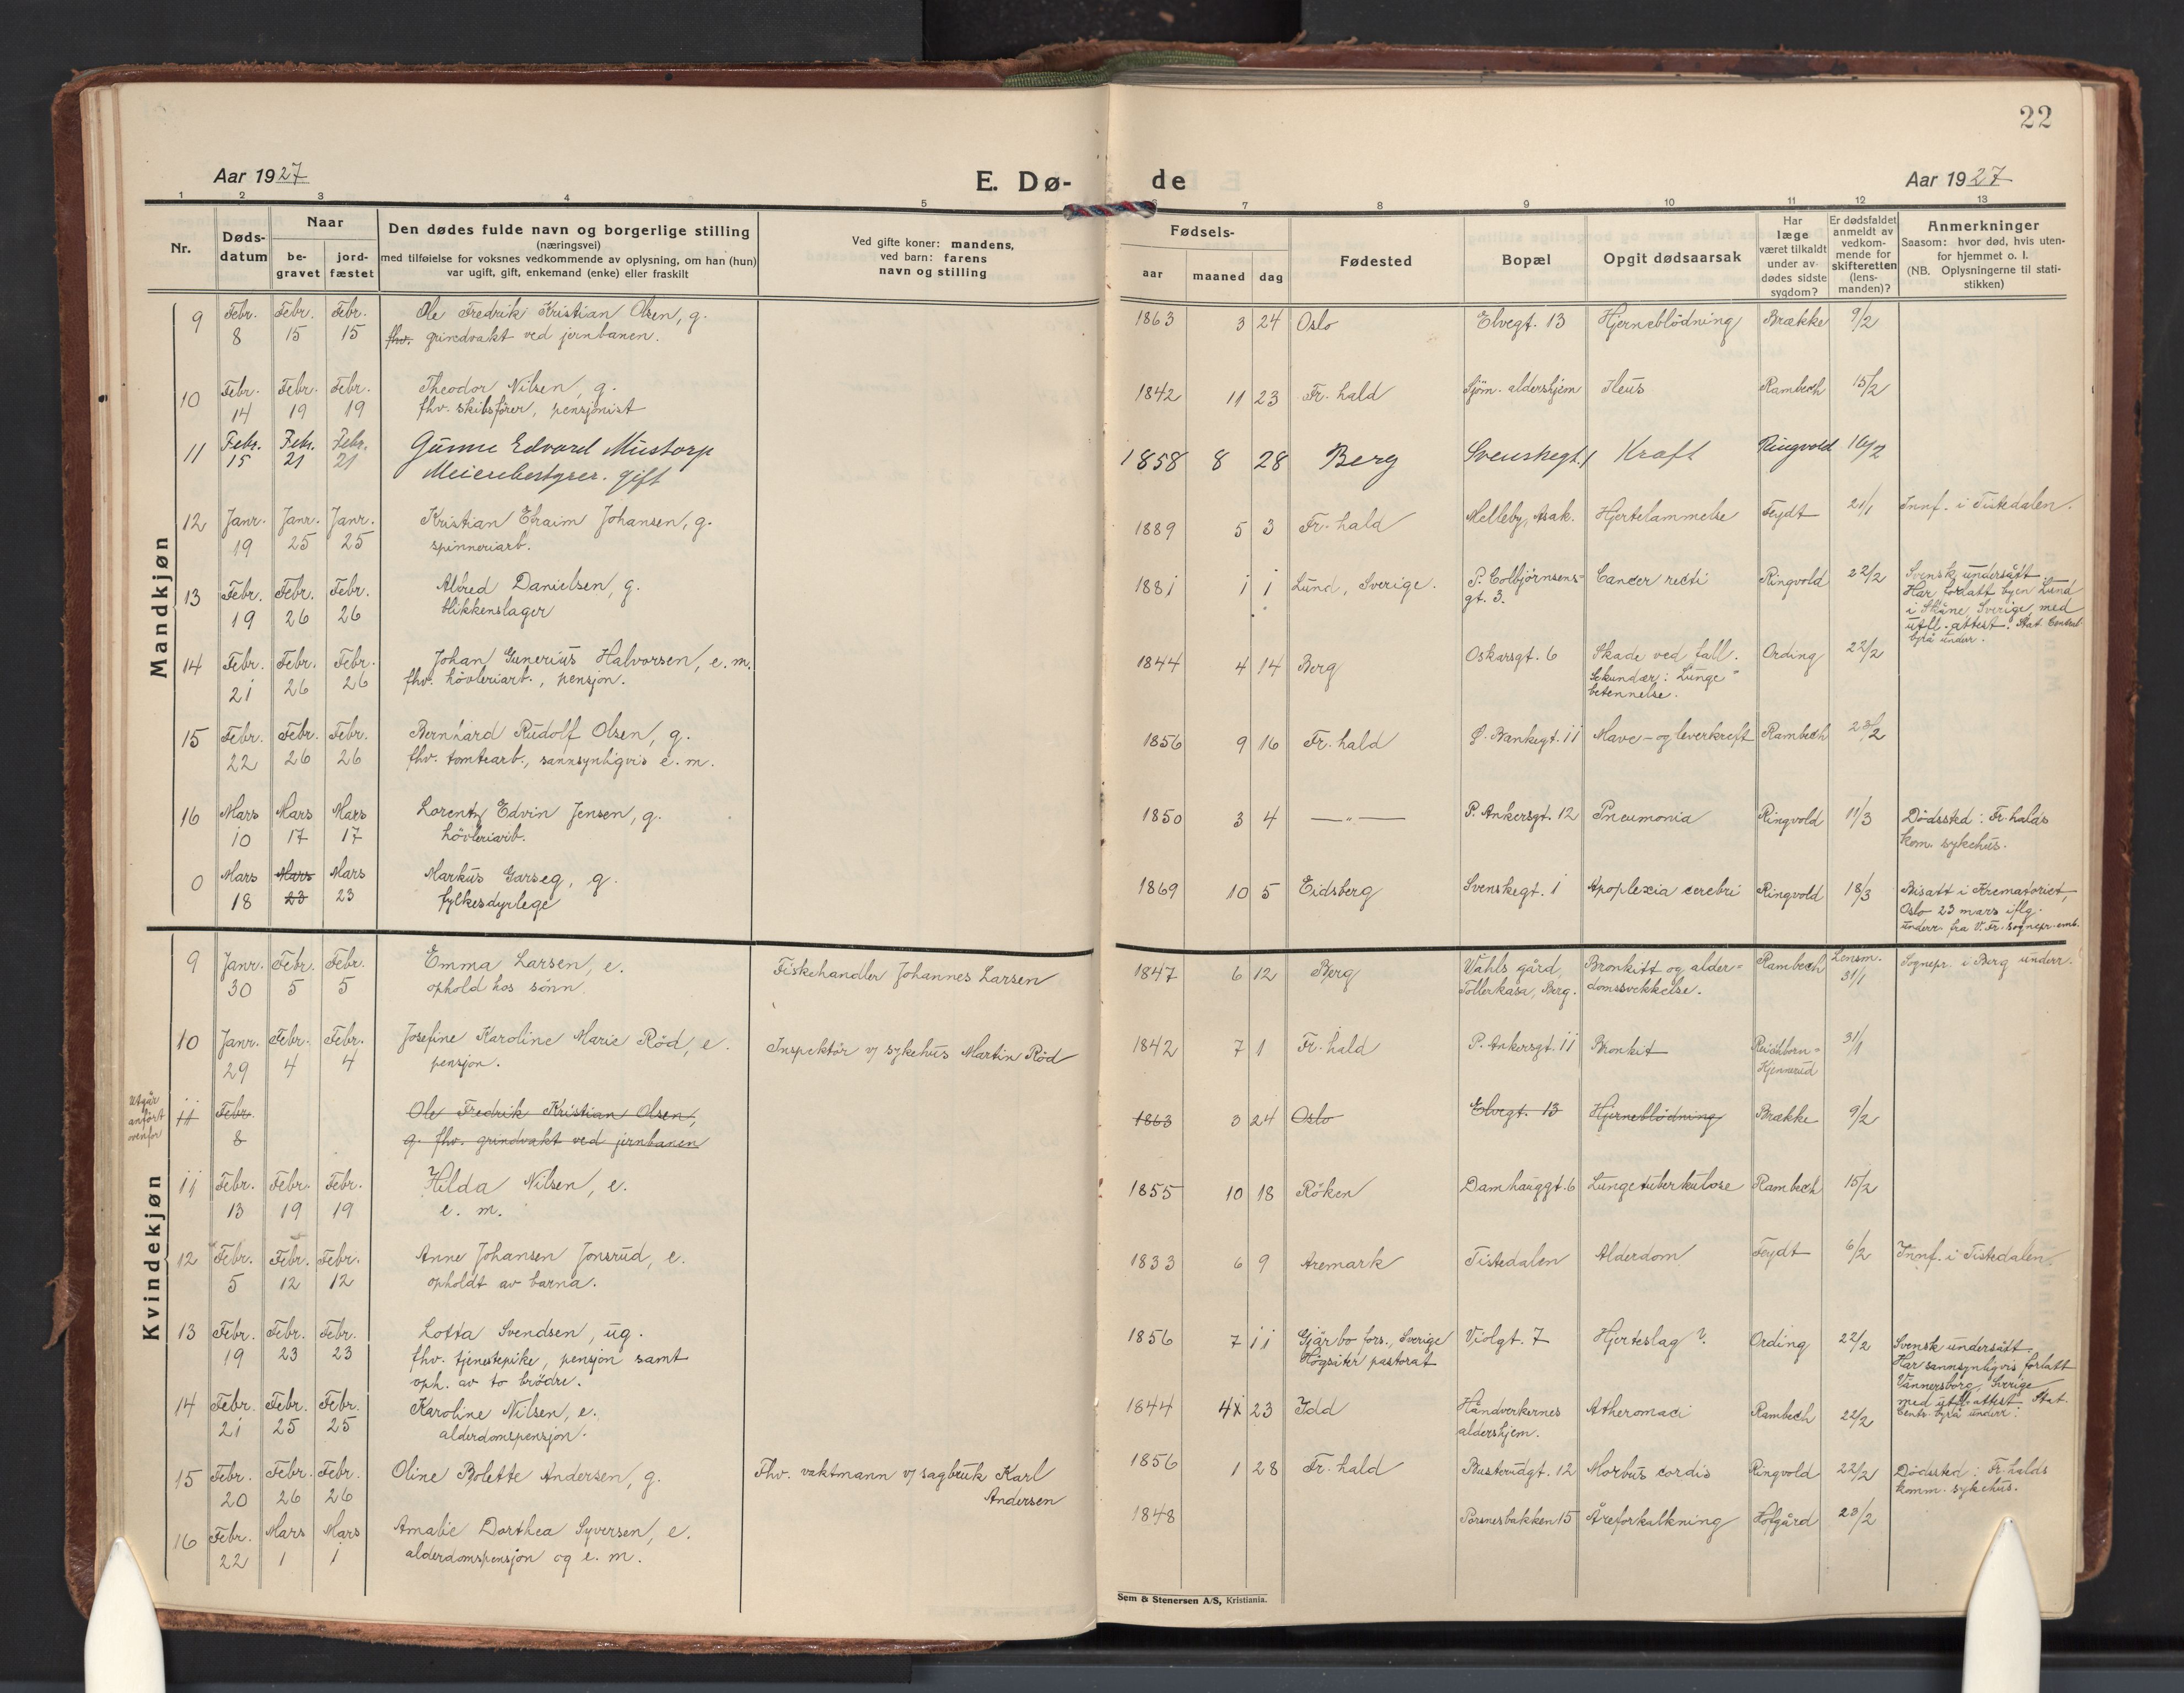 22
Aar 1927
E. Dø-
de
Aar 1927
1 2 3 4 5 6 7 8 9 10 11 12 13
Nr.
Døds-
datum
Naar
be-
gravet
jord-
fæstet
Den dødes fulde navn og borgerlige stilling
(næringsvei)
med tilføielse for voksnes vedkommende av oplysning, om han (hun)
var ugift, gift, enkemand (enke) eller fraskilt
Ved gifte koner: mandens,
ved barn: farens
navn og stilling
Fødsels-
aar maaned dag
Fødested
Bopæl
Opgit dødsaarsak
Har
læge
været tilkaldt
under av-
dødes sidste
sygdom?
Er dødsfaldet
anmeldt av
vedkom-
mende for
skifteretten
(lens-
manden)?
Anmerkninger
Saasom: hvor død, hvis uten-
for hjemmet o. l.
(NB. Oplysningerne til stati-
stikken)
Mandkjøn
9 Febr. Febr. Febr. Ole Fredrik Kristian Olsen, g. 1863 3 24 Oslo Elvegt. 13 Hjerneblödning Brække 9/2
8 15 15 fhv. grindvakt ved jernbanen.
10 Febr. Febr. Febr. Theodor Nilsen, g. 1842 11 23 Fr. hald Sjöm. aldershjem Ileus Rambech 15/2
14 19 19 fhv. skibsfører, pensjonist
11 Febr. Febr. Febr. Gunne Edvard Mustorp 1858 8 28 Berg Svenskegt. 1 Kraft Ringvold 16/2
15 21 21 Meieribestyrer. gift
12 Janr. Janr. Janr. Kristian Efraim Johansen, g. 1889 5 3 Fr. hald Melleby, Asak. Hjertelammelse Feydt 21/1 Innf. i Tistedalen.
19 25 25 spinneriarb.
13 Febr. Febr. Febr. Alfred Danielsen, g. 1881 1 1 Lund, Sverige. P. Colbjörnsens- Cancer recti Ringvold 22/2 Svensk undersått.
19 26 26 blikkenslager gt. 3. Har forlatt byen Lund
i Skåne, Sverige, med
utfl. attest. Stat. Central
byrå underr.
14 Febr. Febr. Febr. Johan Gunerius Halvorsen, e. m. 1844 4 14 Berg Oskarsgt. 6 Skade ved fall. Ording 22/2
21 26 26 fhv. hövleriarb., pensjon. Sekundær: Lunge-
betennelse.
15 Febr. Febr. Febr. Bernhard Rudolf Olsen, g. 1856 9 16 Fr. hald Ø. Bankegt. 11 Mave- og leverkreft Rambech 23/2
22 26 26 fhv. tomtearb., sannsynligvis e. m.
16 Mars Mars Mars Lorentz Edvin Jensen, g. 1850 3 4 —"— P. Ankersgt. 12 Pneumonia Ringvold 11/3 Dödssted: Fr. halds
10 17 17 hövleriarb. kom. sykehus.
0 Mars Mars Mars Markus Garseg, g. 1869 10 5 Eidsberg Svenskegt. 1 Apoplexia cerebri Ringvold 18/3 Bisatt i Krematoriet,
18 23 23 fylkesdyrlege Oslo 23 mars iflg.
underr. fra V. Fr. sognepr. emb.
Kvindekjøn
9 Janr. Febr. Febr. Emma Larsen, e. Fiskehandler Johannes Larsen 1847 6 12 Berg Wahls gård, Bronkitt og alder- Rambech Lensm. Sognepr. i Berg underr.
30 5 5 ophold hos sönn. Tollerkasa, Berg. domssvekkelse. 31/1
10 Janr. Febr. Febr. Josefine Karoline Marie Röd, e. Inspektör v/ sykehus Martin Röd 1842 7 1 Fr. hald P. Ankersgt. 11 Bronkit Reichborn- 31/1
29 4 4 pensjon. Kjennerud
Utgår
anfört
ovenfor
11 Febr. Ole Fredrik Kristian Olsen, 1863 3 24 Oslo Elvegt. 13 Hjerneblödning Brække 9/2
8 g. fhv. grindvakt ved jernbanen
11 Febr. Febr. Febr. Hilda Nilsen, e. 1855 10 18 Röken Damhauggt. 6 Lungetuberkulose Rambech 15/2
13 19 19 e. m.
12 Febr. Febr. Febr. Anne Johansen Jonsrud, e. 1833 6 9 Aremark Tistedalen Alderdom Feydt 6/2 Innf. i Tistedalen.
5 12 12 opholdt av barna.
13 Febr. Febr. Febr. Lotta Svendsen, ug. 1856 7 11 Gjärbo fors., Sverige Violgt. 7 Hjerteslag ?. Ording 22/2 Svensk undersått.
19 23 23 fhv. tjenestepike, pensjon samt pastorat Har sannsynligvis forlatt
oph. av to brödre. Vännersborg, Sverige
med utfl. attest. Stat.
Centr. byrå underr.
14 Febr. Febr. Febr. Karoline Nilsen, e. 1844 4 23 Idd Håndverkernes Rambech 22/2
21 25 25 alderdomspensjon. aldershjem.
15 Febr. Febr. Febr. Oline Bolette Andersen, g. Fhv. vaktmann v/ sagbruk Karl 1856 1 28 Fr. hald Busterudgt. 12 Morbus cordis Ringvold 22/2 Dödssted: Fr. halds
20 26 26 Andersen komm. sykehus.
16 Febr. Mars Mars Amalie Dorthea Syversen, e. 1848 Porsnesbakken 15 Åreforkalkning Hofgård 23/2
22 1 1 alderdomspensjon og e. m.
Sem & Stenersen A/S, Kristiania.